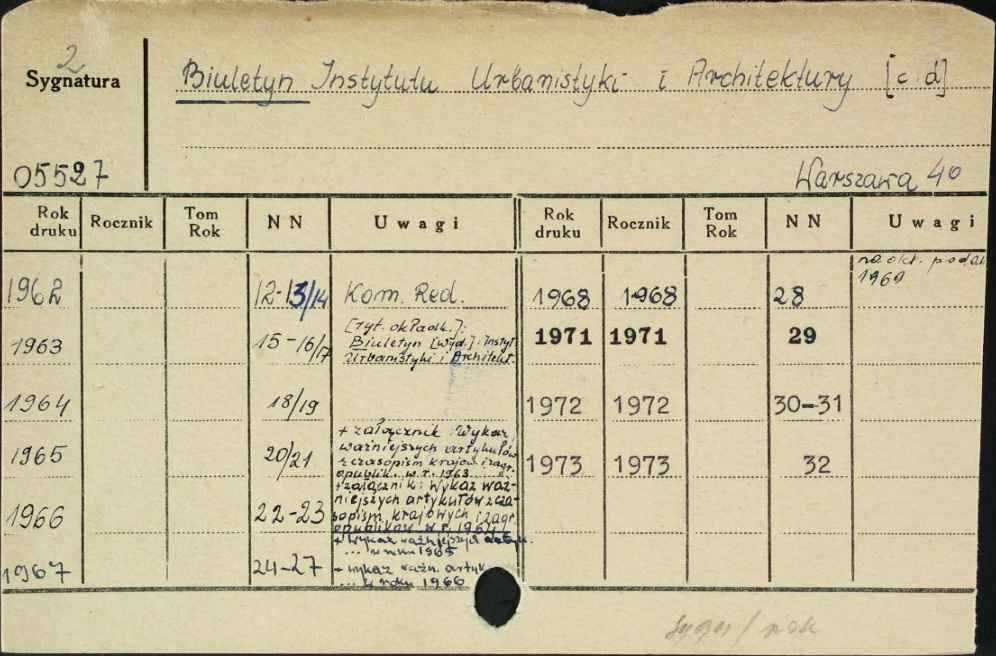 2
Sygnatura
Biuletyn Instytutu Urbanistyki i Architektury [c.d]
05527
Warszawa 4°
Rok druku Rocznik Tom Rok NN Uwagi Rok druku Rocznik Tom Rok NN Uwagi
1962 12-13/14 Kom. Red.
1963 15-16/17 [tyt. okładk.]:
Biuletyn [wyd.]: Instyt.
Urbanistyki i Architekt.
1964 18/19
1965 20/21 + załącznik: Wykaz
ważniejszych artykułów
z czasopism krajow. i zagr.
opublik. w r. 1963
1966 22-23 + załącznik: Wykaz waż-
niejszych artykułów z cza-
sopism krajowych i zagr.
opublikow. w r. 1964
+ Wykaz ważniejszych artyk.
... w roku 1965
1967 24-27 + wykaz ważn. artyk
... z roku 1966
na okł. podan
1969
1968 1968 28
1971 1971 29
1972 1972 30-31
1973 1973 32